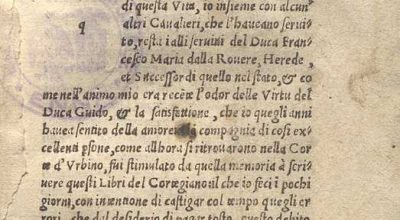 di questa Vita, io insieme con alcun'
q
altri Cauallieri, che l'haueano serui
to, restai alli seruitij del Duca Fran
cesco Maria dalla Rouere, Herede,
et Successor di quello nel stato, & co
me nell'animo mio era recẽte l'odor delle Virtu del
Duca Guido, & la satisfattione, che io quegli anni
hauea sentito della amoreuole compagnia di cosi ex
cellenti psone, come all'hora si ritrouarono nella Cor
te d'Vrbino, fui stimulato da quella memoria à scri
uere questi Libri del Cortegiano il che io feci i pochi
giorni, con intentione di castigar col tempo quegli er
rori, che dal desiderio di pagar tosto questo debito